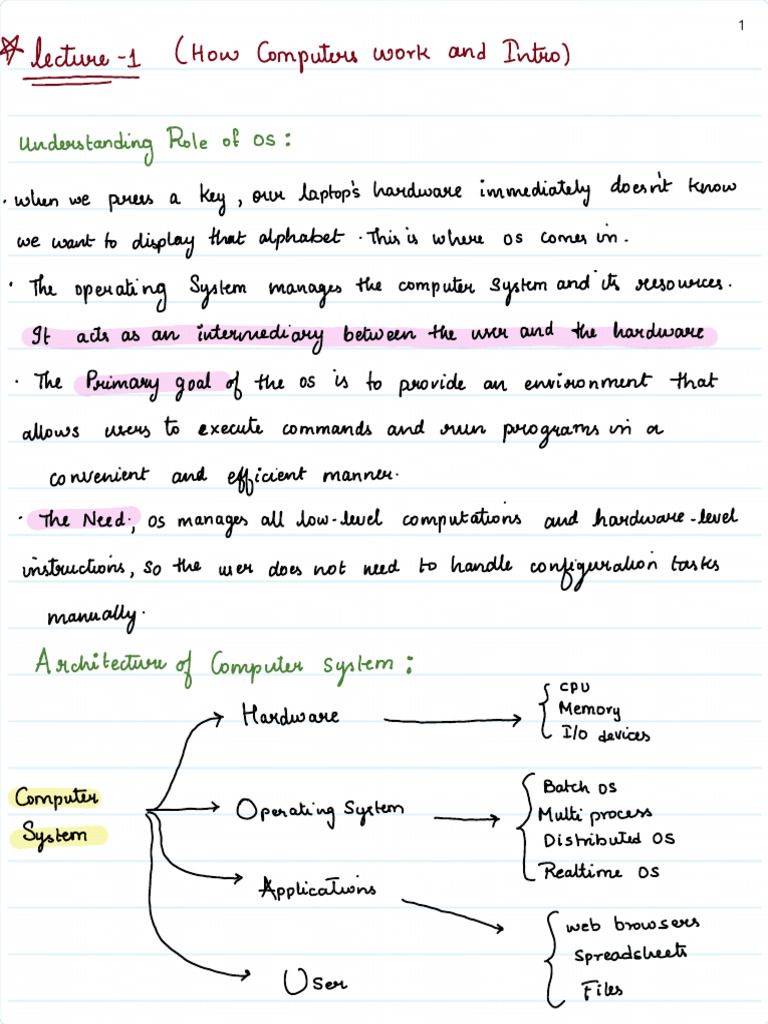 1
Lecture-1 (How Computers work and Intro)
Understanding Role of OS:
· When we press a key, our laptop's hardware immediately doesn't know
we want to display that alphabet. This is where OS comes in.
· The operating System manages the computer system and its resources.
It acts as an intermediary between the user and the hardware
· The Primary goal of the OS is to provide an environment that
allows users to execute commands and run programs in a
convenient and efficient manner.
· The Need:, OS manages all low-level computations and hardware-level
instructions, so the user does not need to handle configuration tasks
manually.
Architecture of Computer system:
Computer
System
Hardware
CPU
Memory
I/O devices
Operating System
Batch OS
Multi process
Distributed OS
Realtime OS
Applications
web browsers
Spreadsheets
Files
User